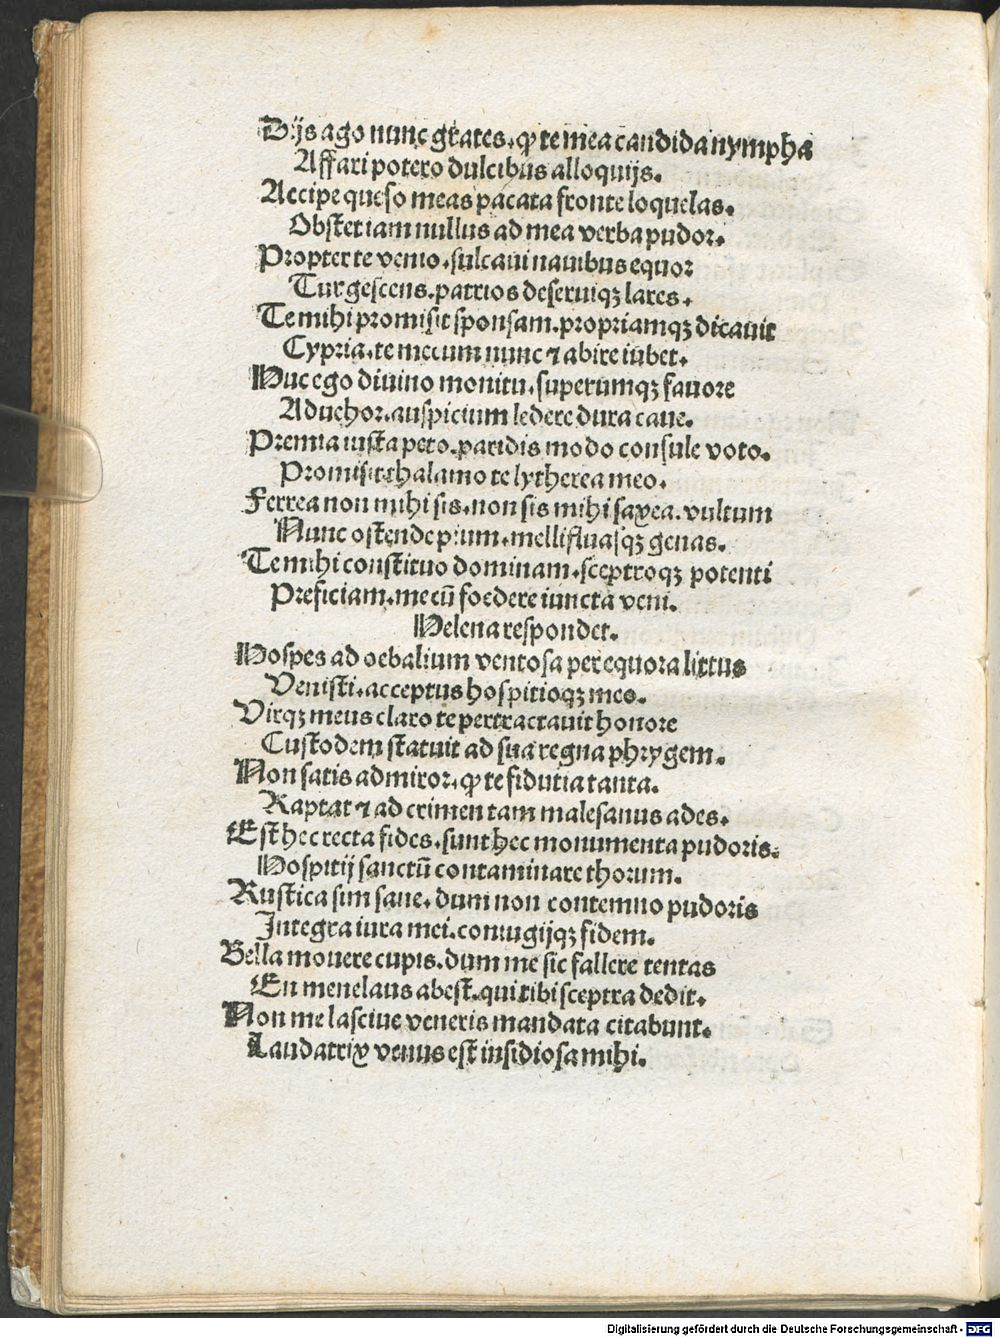 Dijs ago nunc grates. ꝙ te mea candida nympha
Affari potero dulcibus alloquijs.
Accipe queso meas pacata fronte loquelas.
Obstet iam nullus ad mea verba pudor.
Propter te venio. sulcaui nauibus equor
Turgescens. patrios deseruiqꝫ lares.
Te mihi promisit sponsam. propriamqꝫ dicauit
Cypria. te mecum nunc ⁊ abire iubet.
Huc ego diuino monitu. superumqꝫ fauore
Aduehor. auspicium ledere dura caue.
Premia iusta peto. paridis modo consule voto.
Promisit thalamo te lytherea meo.
Ferrea non mihi sis. non sis mihi saxea. vultum
Nunc ostende pium. mellifluasqꝫ genas.
Te mihi constituo dominam. sceptroqꝫ potenti
Preficiam. mecū foedere iuncta veni.
Helena respondet.
Hospes ad oebalium ventosa per equora littus
Venisti. acceptus hospitioqꝫ meo.
Virqꝫ meus claro te pertractauit honore
Custodem statuit ad sua regna phrygem.
Non satis admiror. ꝙ te fidutia tanta.
Raptat ⁊ ad crimen tam malesanus ades.
Est hec recta fides. sunt hec monumenta pudoris.
Hospitij sanctū contaminare thorum.
Rustica sim sane. dum non contemno pudoris
Integra iura mei. coniugijqꝫ fidem.
Bella mouere cupis. dum me sic fallere tentas
En menelaus abest. qui tibi sceptra dedit.
Non me lasciue veneris mandata citabunt.
Laudatrix venus est insidiosa mihi.
Digitalisierung gefördert durch die Deutsche Forschungsgemeinschaft - DFG